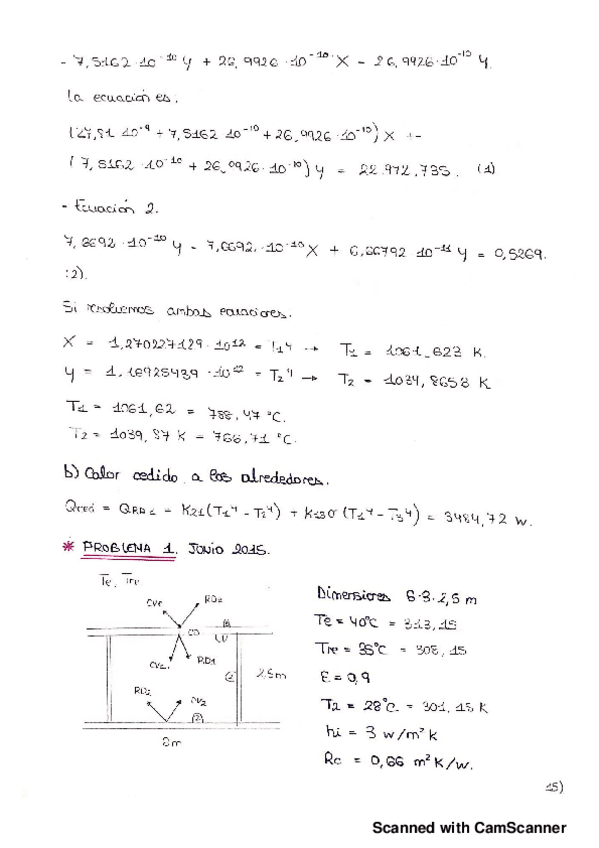 - 7,5162·10⁻¹⁰ y + 26,9926·10⁻¹⁰ x - 26,9926·10⁻¹⁰ y.
la ecuación es:
(27,81 10⁻⁹ + 7,5162 10⁻¹⁰ + 26,9926·10⁻¹⁰) x +-
(7,5162·10⁻¹⁰ + 26,9926·10⁻¹⁰) y = 22.972,735. (1)
- Ecuación 2.
7,6692·10⁻¹⁰ y - 7,6692·10⁻¹⁰ x + 6,66792 10⁻¹¹ y = 0,5269.
(2).
Si resolvemos ambas ecuaciones.
X = 1,270227129·10¹² = T₁⁴ → T₁ = 1061,623 K.
y = 1,16925439·10¹² = T₂⁴ → T₂ = 1039,8658 K
T₁ = 1061,62 = 788,47 °C.
T₂ = 1039,87 K = 766,71 °C.
b) Calor cedido a los alrededores.
Qced = QRD1 = K21(T₁⁴ - T₂⁴) + K13σ(T₁⁴ - T₃⁴) = 3484,72 w.
* PROBLEMA 1. JUNIO 2015.
Te, Tre
CVe
RD2
CD
CV1
RD1
2,5m
RD2
CV2
8m
Dimensiones 6·8·2,5 m
Te = 40°C = 313,15
Tre = 35°C = 308,15
ε = 0,9
T2 = 28°C = 301,15 K
hi = 3 w/m² k
Rc = 0,66 m² K/w.
15)
Scanned with CamScanner